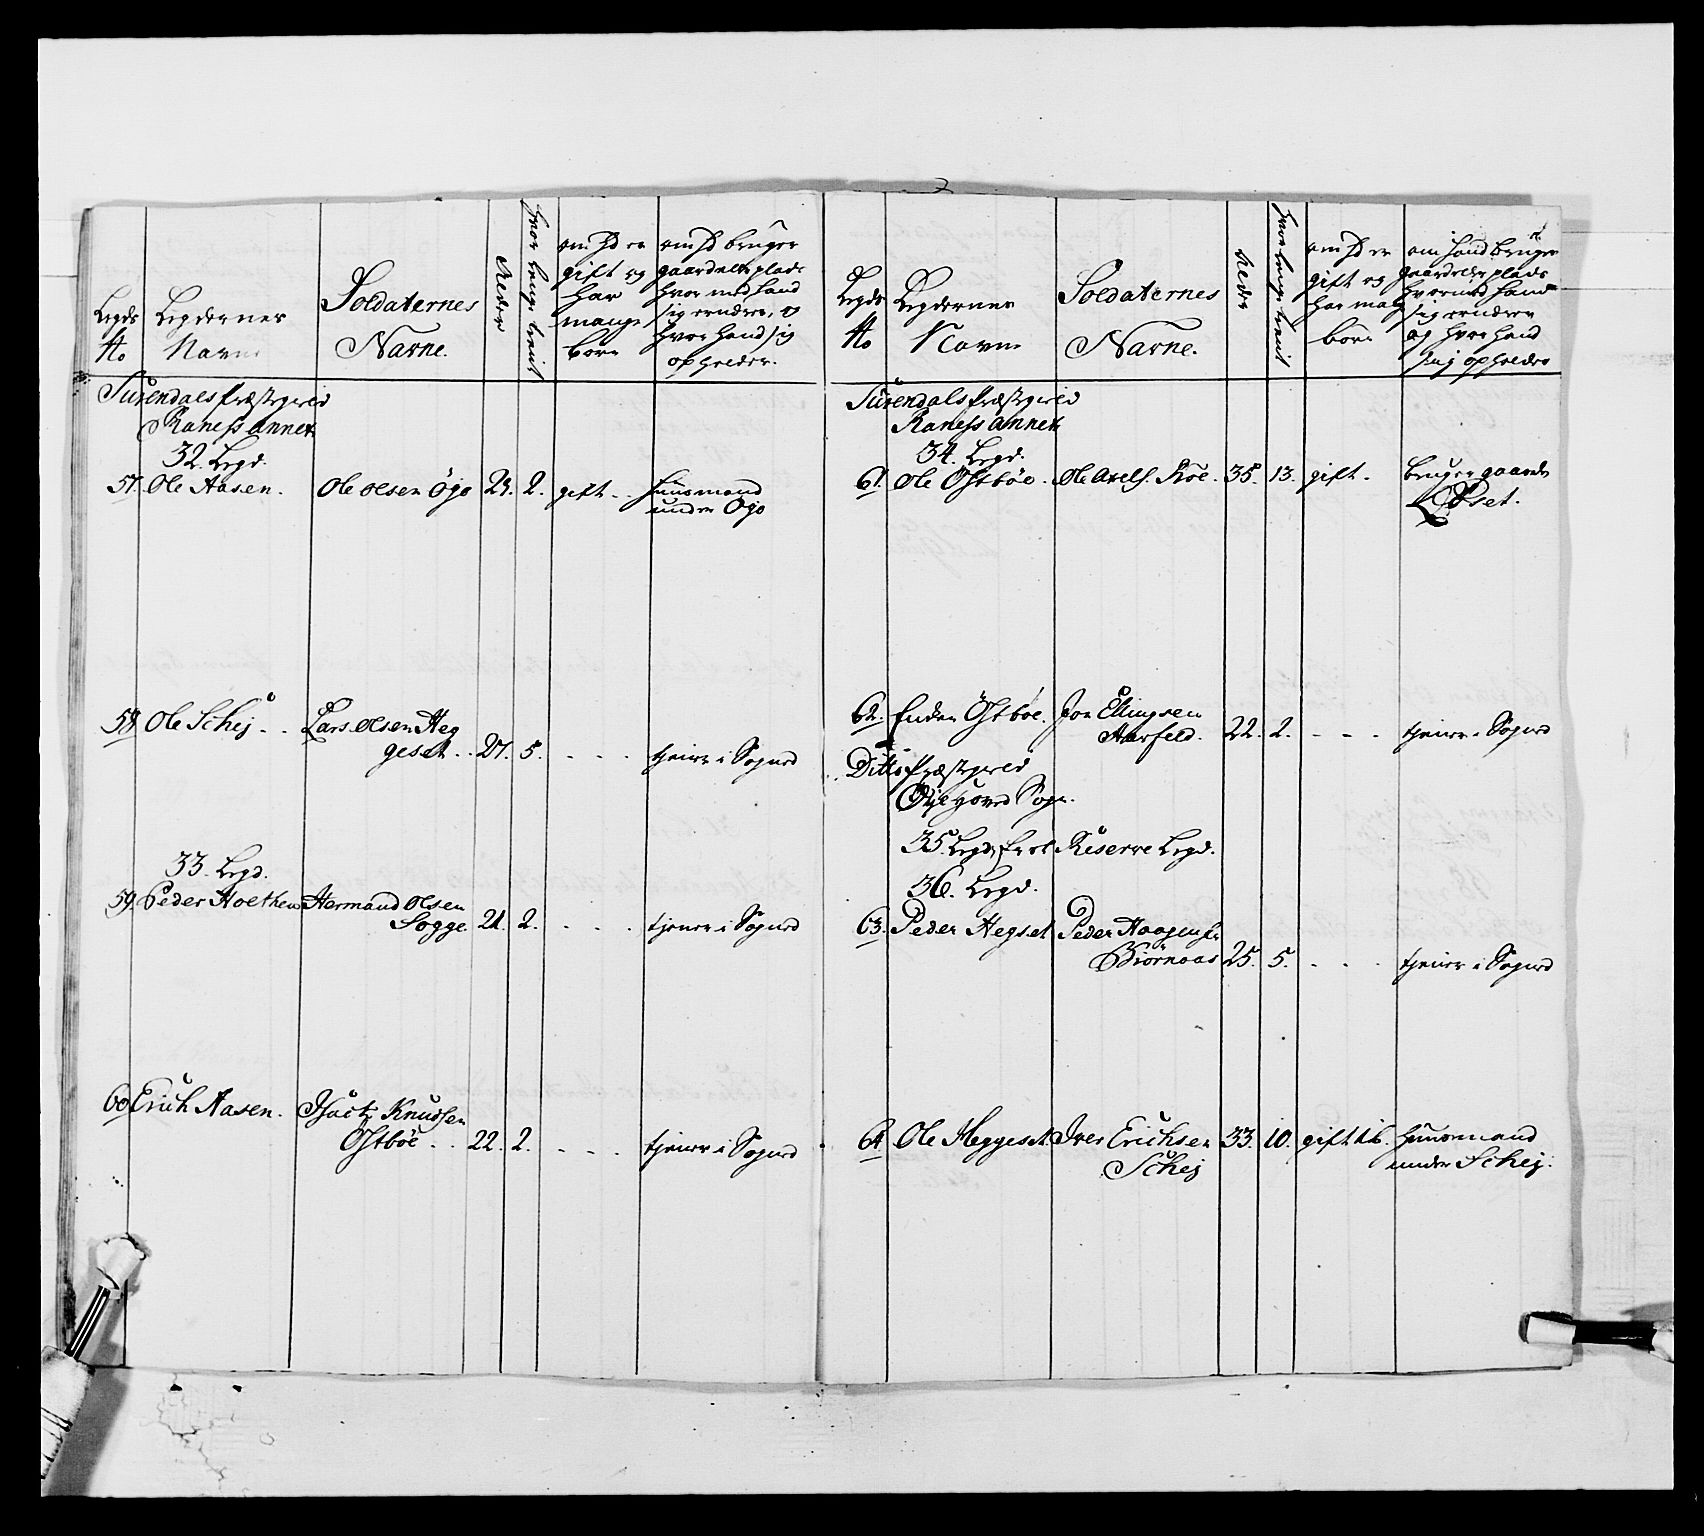 Legds
No
Legdernes
Navne
Soldaternes
Navne.
Alder
hvor lenge tient
om hand er
gift og
har
mange
børn
om hd bruger
gaard eller plads
hvor med hand
sig ernærer, og
hvor hand sig
opholder.
Surendals Præstegield
Raness annex
32. Legd.
57. Ole Aasen. Ole Olsen Øgo 24. 2. gift - - Huusmand
under Øgo
58. Ole Schej . . Lars Olsen Heg
geset . . 27. 5. - - - tjener i Sognet
33. Legd.
59. Peder Holthen Hermand Olsen
Sogge 21. 2. - - - tjener i Sognet
60 Erich Aasen. Isach Knudsen
Østbøe . . 22. 2. - - - tjener i Sognet
Legds
No
Legdernes
Navne
Soldaternes
Navne.
Alder
hvor lenge tient
om hd er
gift og
har mange
børn
om hand bruger
gaard eller plads
hvormed hand
sig ernærer
og hvor hand
sig opholder
Surendals Præstegield
Raness annex
34. Legd.
61. Ole Østbøe. Ole Axels. Koe. 35. 13. gift. bruger gaarden
Øset.
62. Ender Østbøe. Jon Ellingsen
Aarfeld. 22. 2. - - - tjener i Sognet
Ditto Præstegield
Øye Hoved Sogn.
35. Legd, Reserve Legd.
36. Legd.
63. Peder Hegset Peder Haagens:
Biørnaas 25. 5. - - - tjener i Sognet
64 Ole Heggeset Iver Erichsen 33. 10. gift 1 b. Huusmand
Schej under Schej.